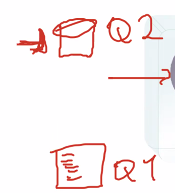 Q2
Q1